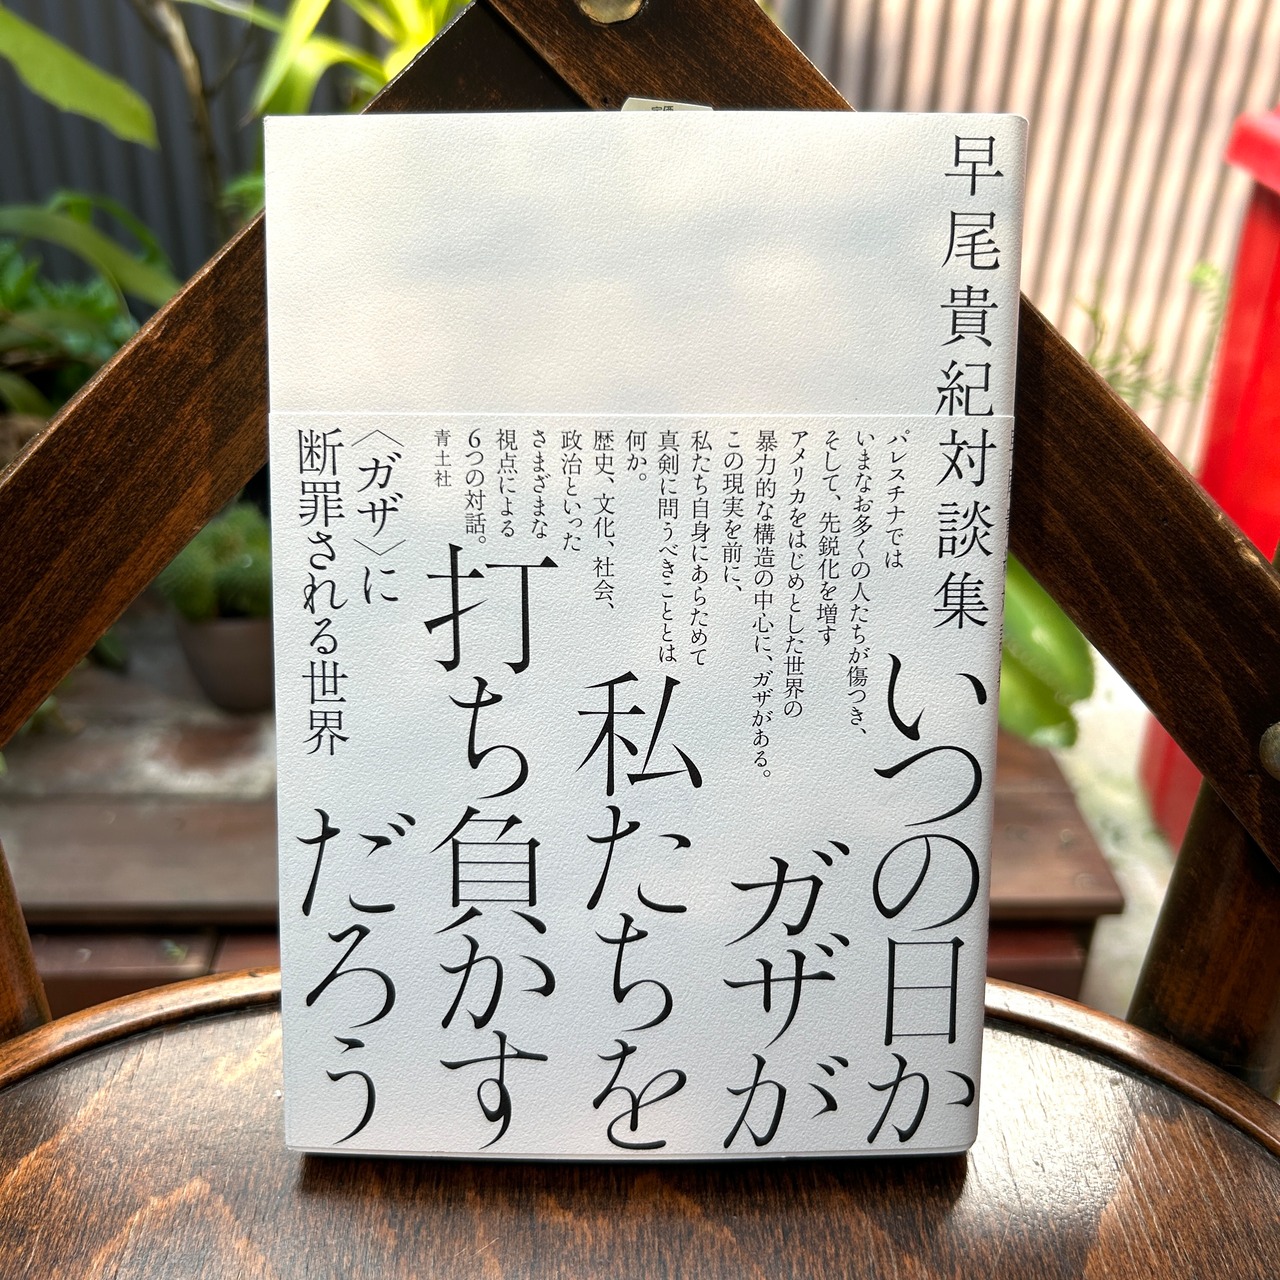 定価
早尾貴紀対談集
いつの日か
ガザが
私たちを
打ち負かす
だろう
パレスチナでは
いまなお多くの人たちが傷つき、
そして、先鋭化を増す
アメリカをはじめとした世界の
暴力的な構造の中心に、ガザがある。
この現実を前に、
私たち自身にあらためて
真剣に問うべきこととは
何か。
歴史、文化、社会、
政治といった
さまざまな
視点による
6つの対話。
青土社
〈ガザ〉に
断罪される世界